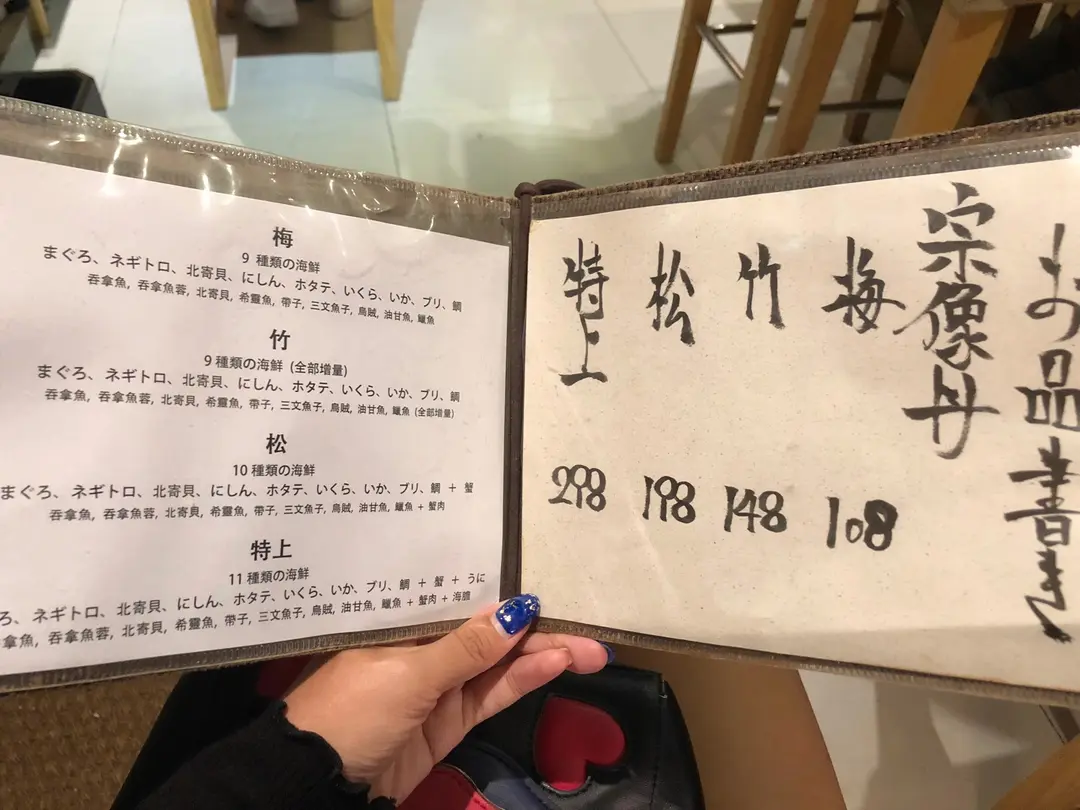 梅
9 種類の海鮮
まぐろ、ネギトロ、北寄貝、にしん、ホタテ、いくら、いか、ブリ、鯛
吞拿魚, 吞拿魚蓉, 北寄貝, 希靈魚, 帶子, 三文魚子, 烏賊, 油甘魚, 鱲魚
竹
9 種類の海鮮 (全部増量)
まぐろ、ネギトロ、北寄貝、にしん、ホタテ、いくら、いか、ブリ、鯛
吞拿魚, 吞拿魚蓉, 北寄貝, 希靈魚, 帶子, 三文魚子, 烏賊, 油甘魚, 鱲魚 (全部增量)
松
10 種類の海鮮
まぐろ、ネギトロ、北寄貝、にしん、ホタテ、いくら、いか、ブリ、鯛 + 蟹
吞拿魚, 吞拿魚蓉, 北寄貝, 希靈魚, 帶子, 三文魚子, 烏賊, 油甘魚, 鱲魚 + 蟹肉
特上
11 種類の海鮮
ろ、ネギトロ、北寄貝、にしん、ホタテ、いくら、いか、ブリ、鯛 + 蟹 + うに
拿魚, 吞拿魚蓉, 北寄貝, 希靈魚, 帶子, 三文魚子, 烏賊, 油甘魚, 鱲魚 + 蟹肉 + 海膽
お品書き
宗像丼
梅 108
竹 148
松 198
特上 298